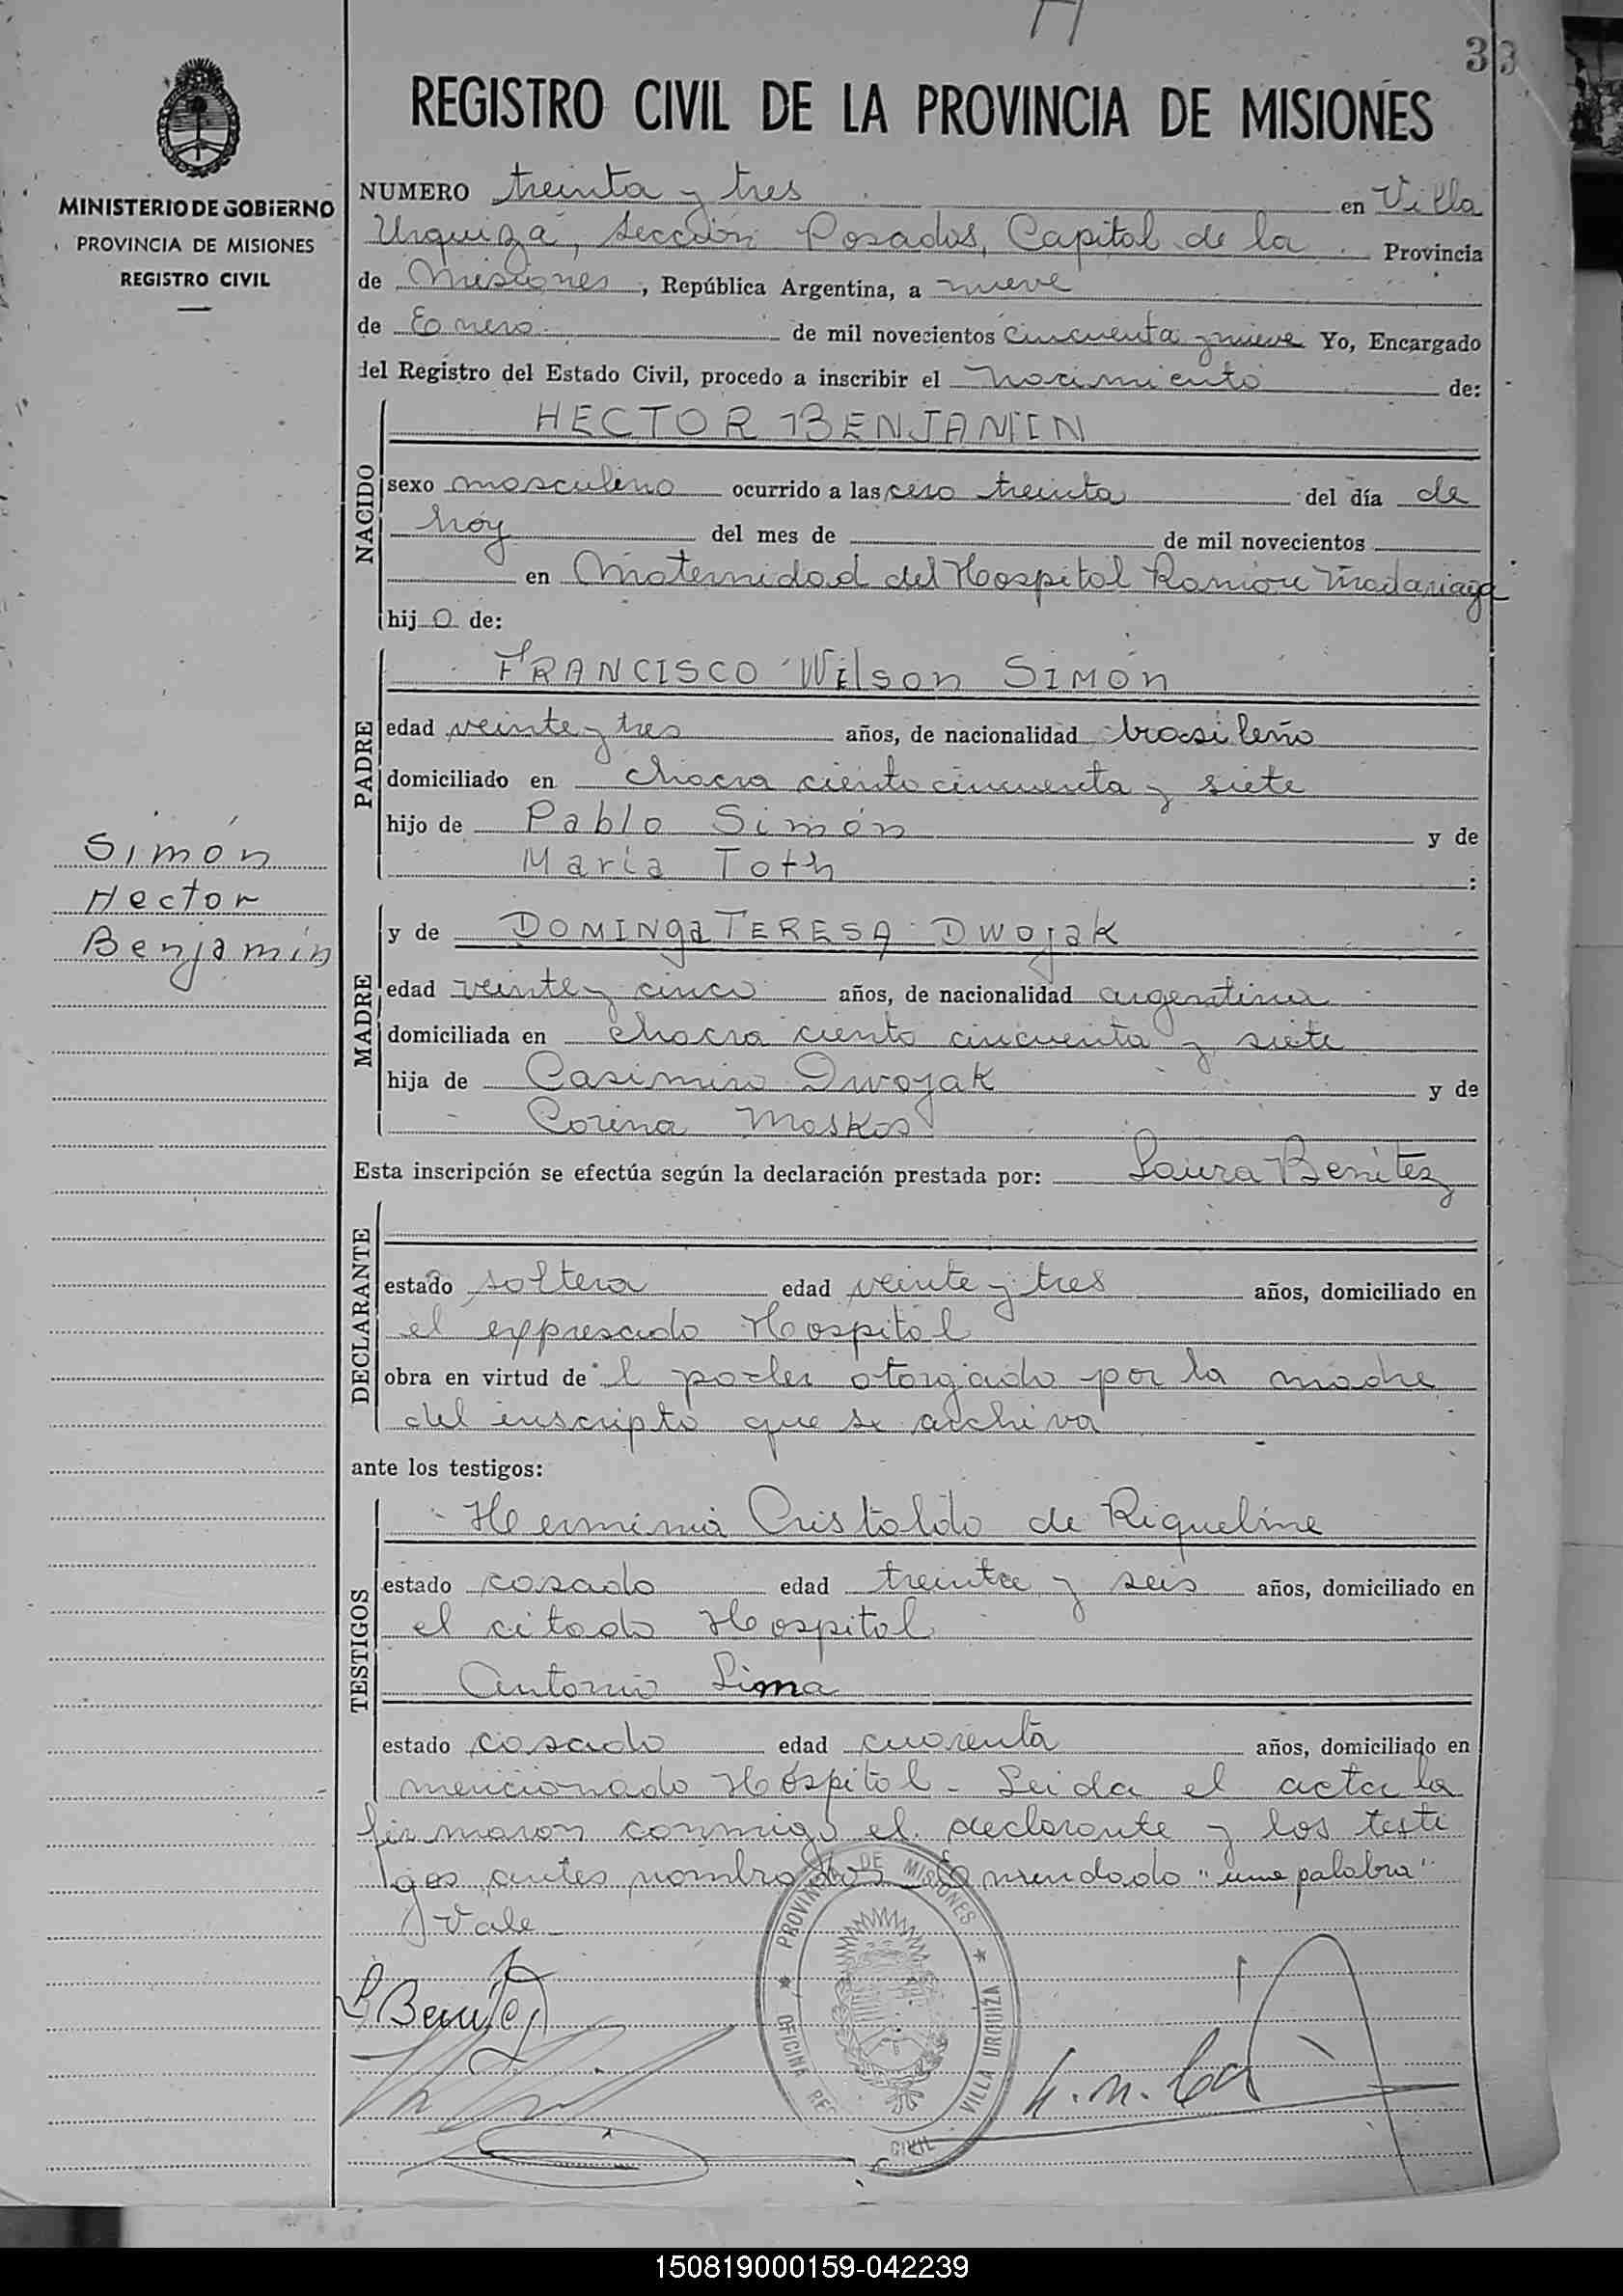 33
REGISTRO CIVIL DE LA PROVINCIA DE MISIONES
MINISTERIO DE GOBIERNO
PROVINCIA DE MISIONES
REGISTRO CIVIL
NUMERO treinta y tres en Villa
Urquiza, sección Posadas, Capital de la Provincia
de Misiones, República Argentina, a nueve
de Enero de mil novecientos cincuenta y nueve Yo, Encargado
del Registro del Estado Civil, procedo a inscribir el nacimiento de:
NACIDO
HECTOR BENJAMIN
sexo masculino ocurrido a las cero treinta del día de
hoy del mes de de mil novecientos
en Maternidad del Hospital Ramón Madariaga
hijo de:
PADRE
FRANCISCO Wilson SIMÓN
edad veinte y tres años, de nacionalidad brasileño
domiciliado en chacra ciento cincuenta y siete
hijo de Pablo Simón y de
María Toth :
Simón
Hector
Benjamín
MADRE
y de DOMINga TERESA DWOjak
edad veinte y cinco años, de nacionalidad argentina
domiciliada en chacra ciento cincuenta y siete
hija de Casimiro Dwojak y de
Corina Moskos
Esta inscripción se efectúa según la declaración prestada por: Laura Benítez
DECLARANTE
estado soltera edad veinte y tres años, domiciliado en
el expresado Hospital
obra en virtud del poder otorgado por la madre
del inscripto que se archiva
ante los testigos:
TESTIGOS
Herminia Cristaldo de Riquelme
estado casado edad treinta y seis años, domiciliado en
el citado Hospital
Antonio Lima
estado casado edad cuarenta años, domiciliado en
mencionado Hospital - Leida el acta la
firmaron conmigo el declarante y los testi
gos antes nombrados Enmendado "una palabra"
Vale
L Benítez
PROVINCIA DE MISIONES * VILLA URQUIZA
* OFICINA REG CIVIL
150819000159-042239